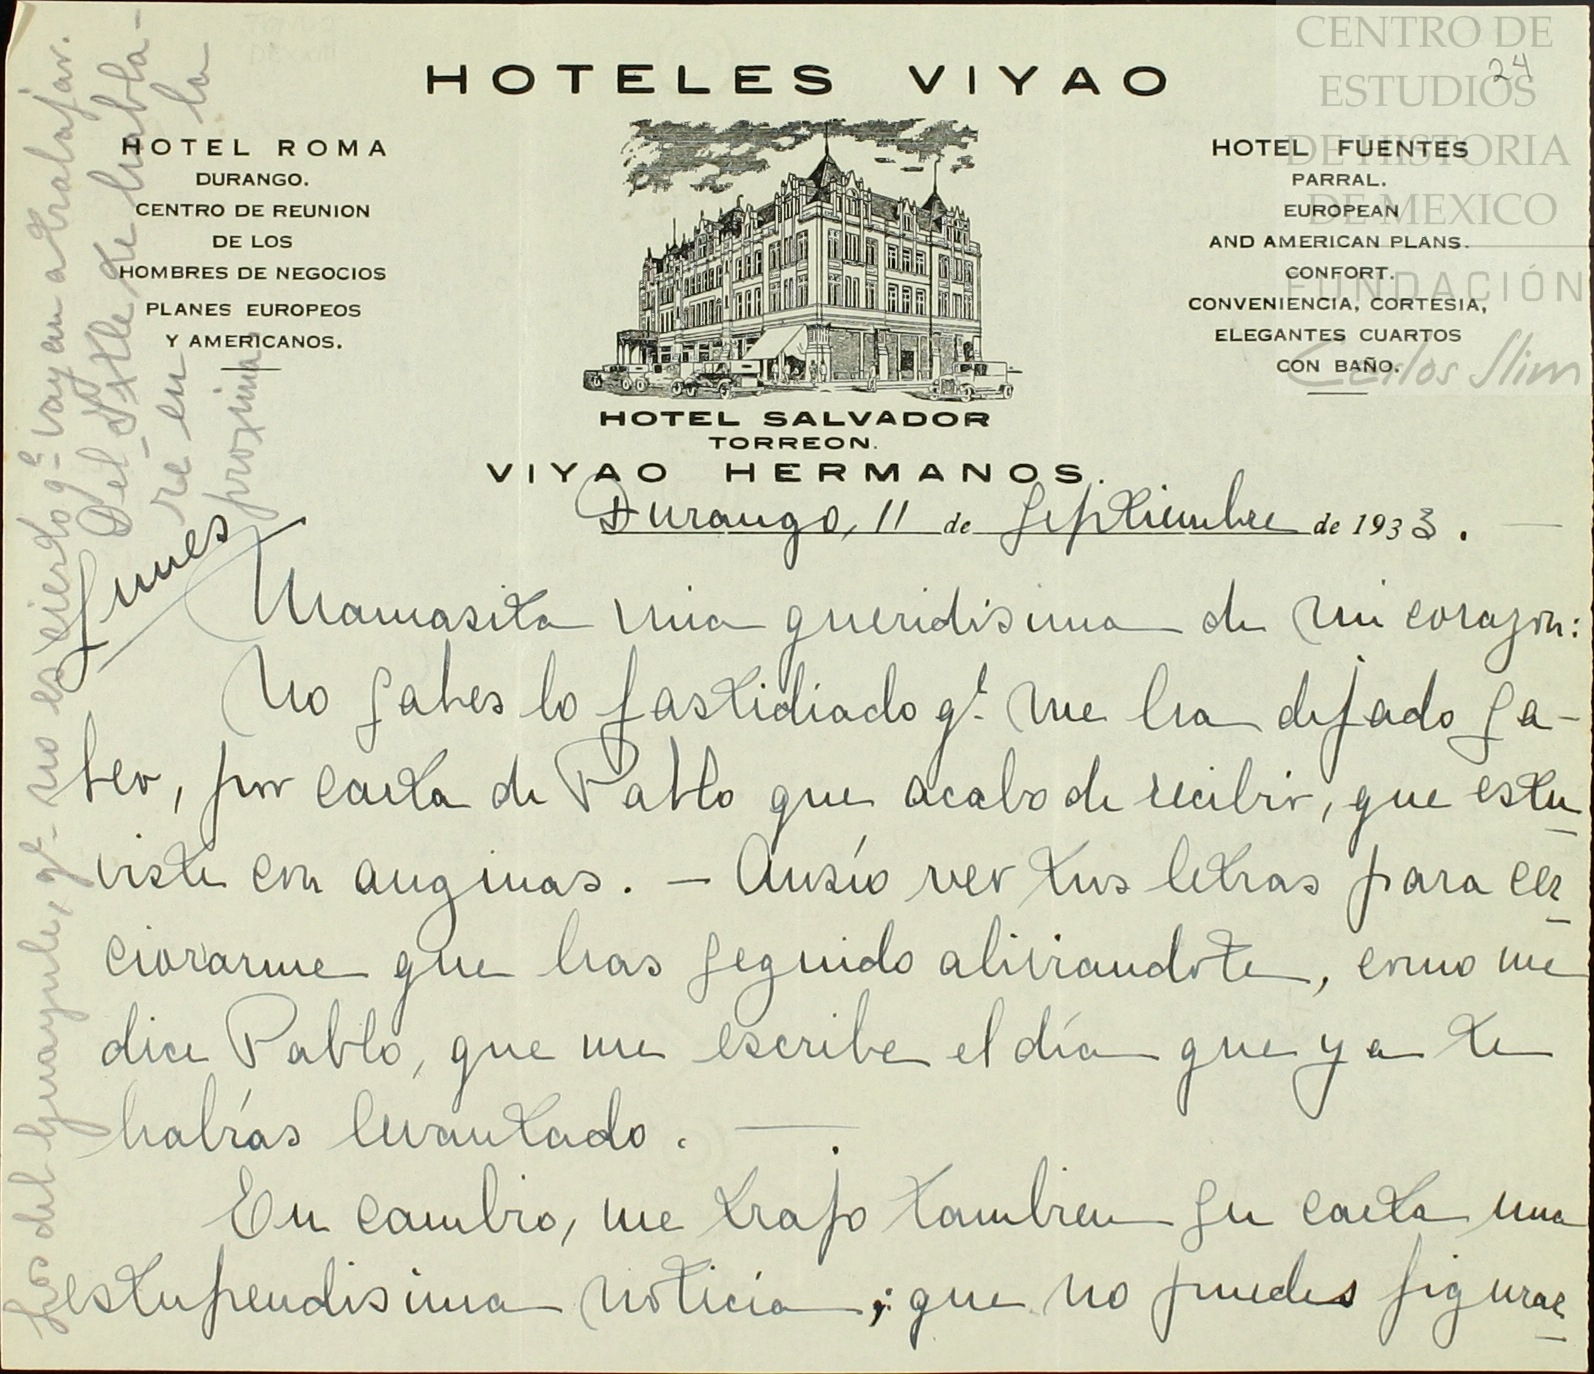 HOTELES VIYAO
24
HOTEL ROMA
DURANGO.
CENTRO DE REUNION
DE LOS
HOMBRES DE NEGOCIOS
PLANES EUROPEOS
Y AMERICANOS.
HOTEL FUENTES
PARRAL.
EUROPEAN
AND AMERICAN PLANS.
CONFORT.
CONVENIENCIA, CORTESIA,
ELEGANTES CUARTOS
CON BAÑO.
HOTEL SALVADOR
TORREON.
VIYAO HERMANOS.
Durango, 11 de Septiembre de 1933.
Lunes
Mamasita mia queridisima de mi corazon:
No sabes lo fastidiado qe. me ha dejado sa-
ber, por carta de Pablo que acabo de recibir, que estu-
viste con anginas. — Ansío ver tus letras para cer-
ciorarme que has seguido aliviandote, como me
dice Pablo, que me escribe el día que ya te
habías levantado. —
En cambio, me trajo tambien su carta una
estupendisima noticia; que no puedes figurar-
Los del Guayule, qe. no es cierto qe. vayan a trabajar.
Del Ixtle te habla-
ré en la
proxima
CENTRO DE
ESTUDIOS
DE HISTORIA
DE MEXICO
FUNDACIÓN
Carlos Slim